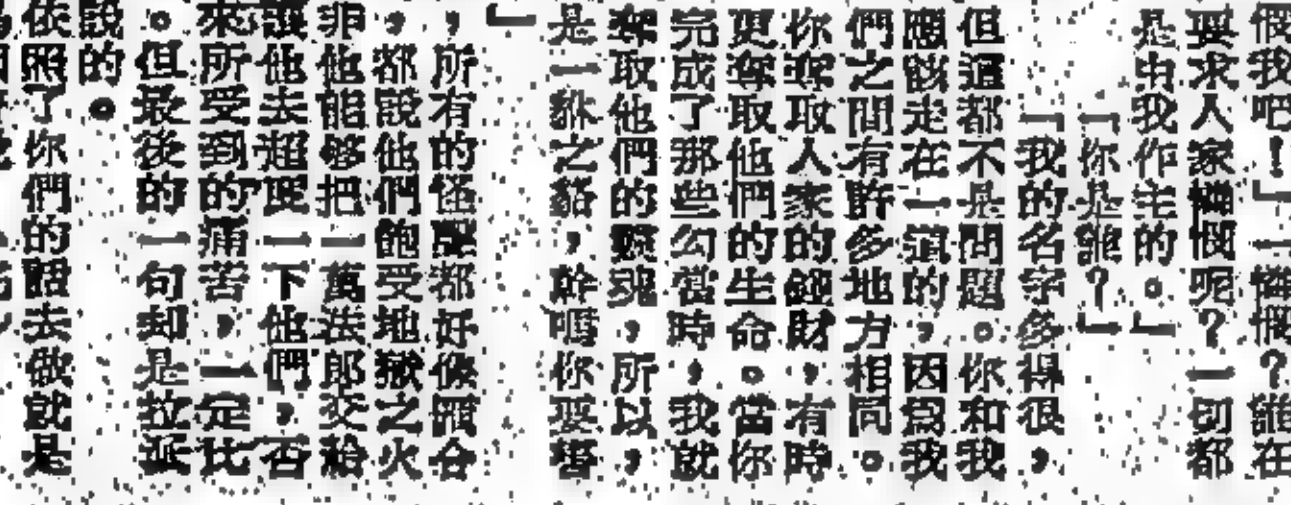 憫我吧！」「憐憫？誰在
要求人家憐憫呢？一切都
是由我作主的。」
「你是誰？」
「我的名字多得很，
但這都不是問題。你和我
應該走在一道的，因爲我
們之間有許多地方相同。
你奪取人家的錢財，有時
更奪取他們的生命。當你
完成了那些勾當時，我就
奪取他們的靈魂，所以，
是一　之貉，幹嗎你要
」
，所有的怪　都好像混合
，都說他們飽受地獄之火
非他能够把一萬法郎交給
讓他去超度一下他們，否
來所受到的痛苦，一定比
。但最後的一句却是拉派
說的。
依照了你們的話去做就是